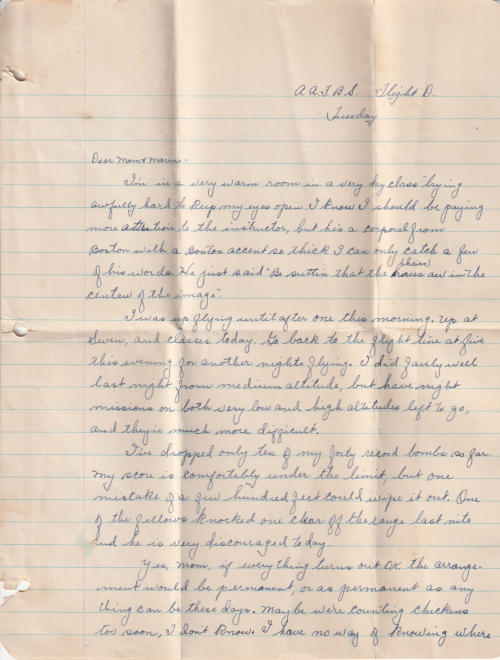 A A F B S. Flight D.
Tuesday
Dear Mom & Marine -
I'm in a very warm room in a very dry class trying
awfully hard to keep my eyes open. I know I should be paying
more attention to the instructor, but his a corporal from
Boston with a Boston accent so thick I can only catch a few
of his words. He just said "Be suttin that the haas aw in the
(hairs)
centaw of the image".
I was up flying until after one this morning. Up at
seven, and classes today. Go back to the flight line at five
this evening for another nights flying. I did fairly well
last night from medium altitude, but have night
missions on both very low and high altitudes left to go,
and they're much more difficult.
I've dropped only ten of my forty record bombs so far.
My score is comfortably under the limit, but one
mistake of a few hundred feet could wipe it out. One
of the fellows knocked one clear off the range last nite
and he is very discouraged today.
Yes, Mom, if everything turns out OK the arrange-
ment would be permanent, or as permanent as any
thing can be these days. Maybe we're counting chickens
too soon, I don't know. I have no way of knowing where